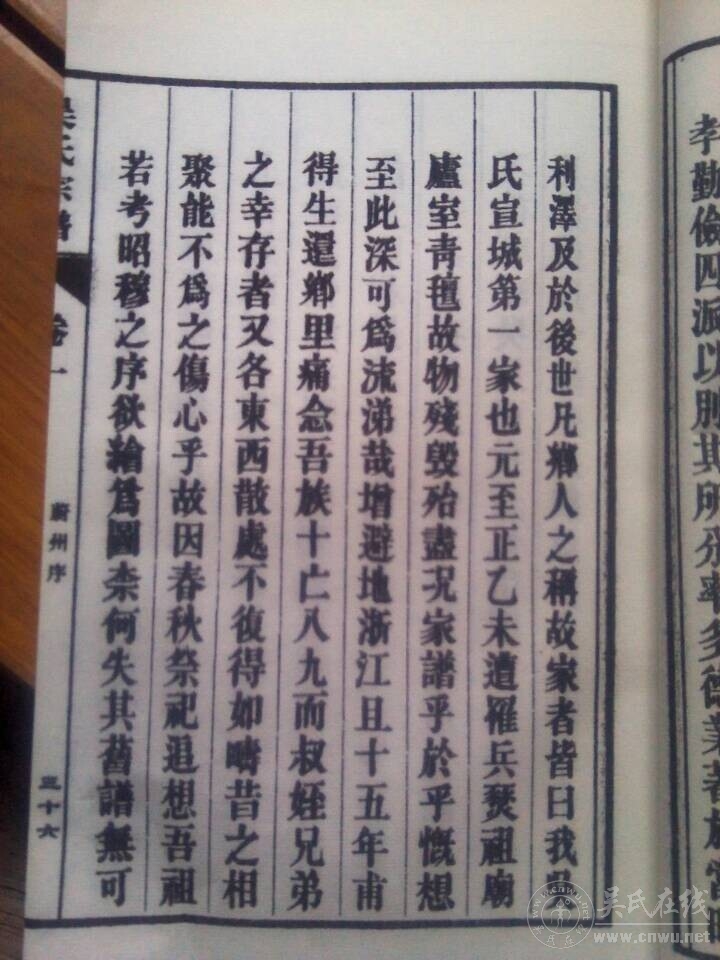 孝勤儉四派以別其所分率多德業著於
利澤及於後世凡鄉人之稱故家者皆曰我吳
氏宣城第一家也元至正乙未遭罹兵燹祖廟
廬室靑氊故物殘毀殆盡况家譜乎於乎慨想
至此深可爲流涕哉增避地浙江且十五年甫
得生還鄉里痛念吾族十亡八九而叔姪兄弟
之幸存者又各東西散處不復得如疇昔之相
聚能不爲之傷心乎故因春秋祭祀追想吾祖
若考昭穆之序欲繪爲圖柰何失其舊譜無可
吳氏宗譜
卷一
蔚州序
三十六
吳氏在线
www.cnwu.net